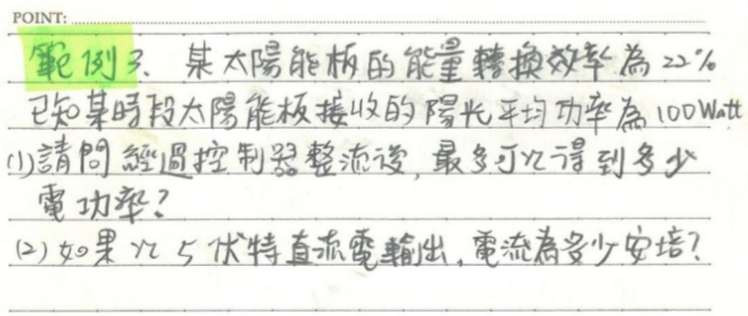 POINT:
範例3、某太陽能板的能量轉換效率為22%
已知某時段太陽能板接收的陽光平均功率為100Watt
(1)請問經過控制器整流後,最多可以得到多少
電功率?
(2)如果以5伏特直流電輸出,電流為多少安培?